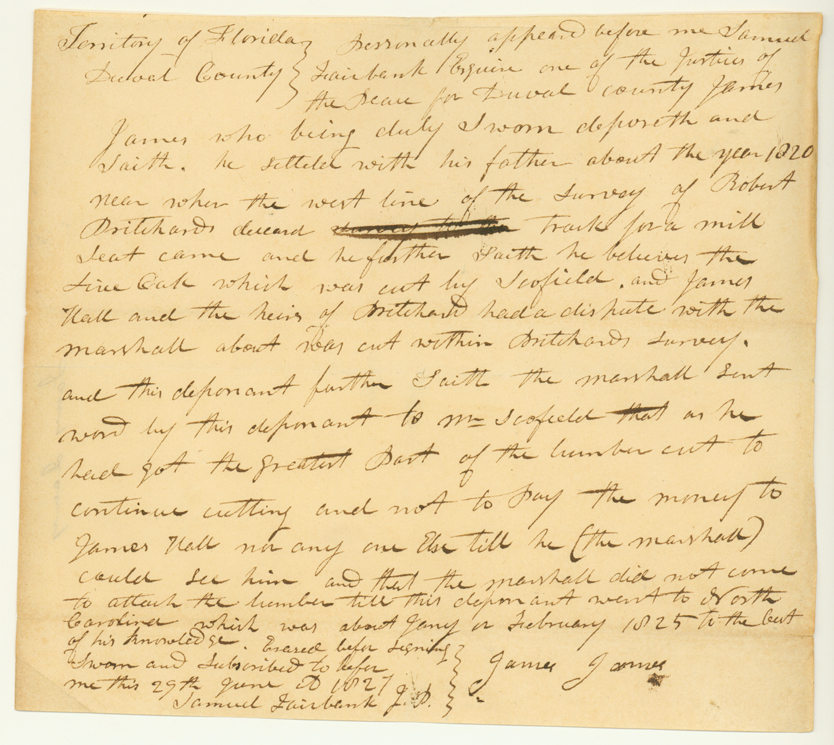 Territory of Florida } Personally appeard before me Samuel
Duval County } Fairbank Esquire one of the Justices of
the Peace for Duval county James
James who being duly Sworn deposeth and
Saith. he settled with his father about the year 1820
near wher the west line of the survey of Robert
Pritchards deceard track for a mill
Seat came and he further Saith he believes the
Live Oak which was cut by Scofield. and James
Hall and the heirs of Pritchard had a dispute with the
marshall about was cut within Pritchards survey.
and this deponant further Saith the marshall Sent
word by this deponant to Mr Scofield that as he
had got the greatest Part of the lumber cut to
continue cutting and not to Pay the money to
James Hall nor any one Else till he (the marshall)
could see him and that the marshall did not come
to attack the lumber till this deponant went to North
Carolina which was about Jany or February 1825 to the best
of his knowledge. Erased befor signing
Sworn and Subscribed to befor } James James
me this 29th June AD 1827
Samuel Fairbank J.P.